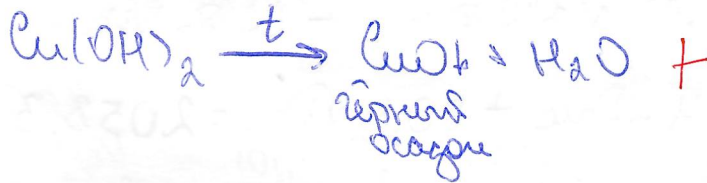 Cu(OH)₂ →ᵗ CuO↓ + H₂O +
чёрный
осадок